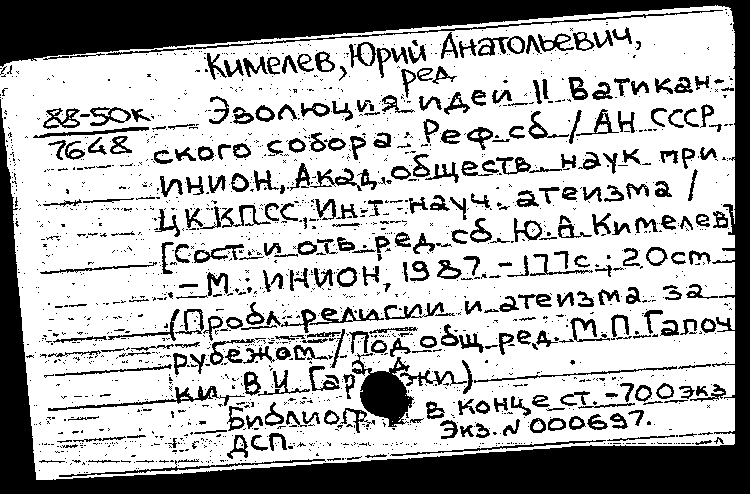 Кимелев, Юрий Анатольевич,
ред.
88-50к Эволюция идей II Ватикан-
7648 ского собора: Реф. сб. / АН СССР,
ИНИОН, Акад. обществ. наук при
ЦК КПСС, Ин-т науч. атеизма /
[Сост. и отв. ред. сб. Ю.А. Кимелев]
- М.: ИНИОН, 1987. - 177с.; 20см -
(Пробл. религии и атеизма за
рубежом / Под общ. ред. М.П. Гапоч
ки, В.И.
Библиогр. в конце ст. - 700 экз
ДСП. Экз. № 000697.